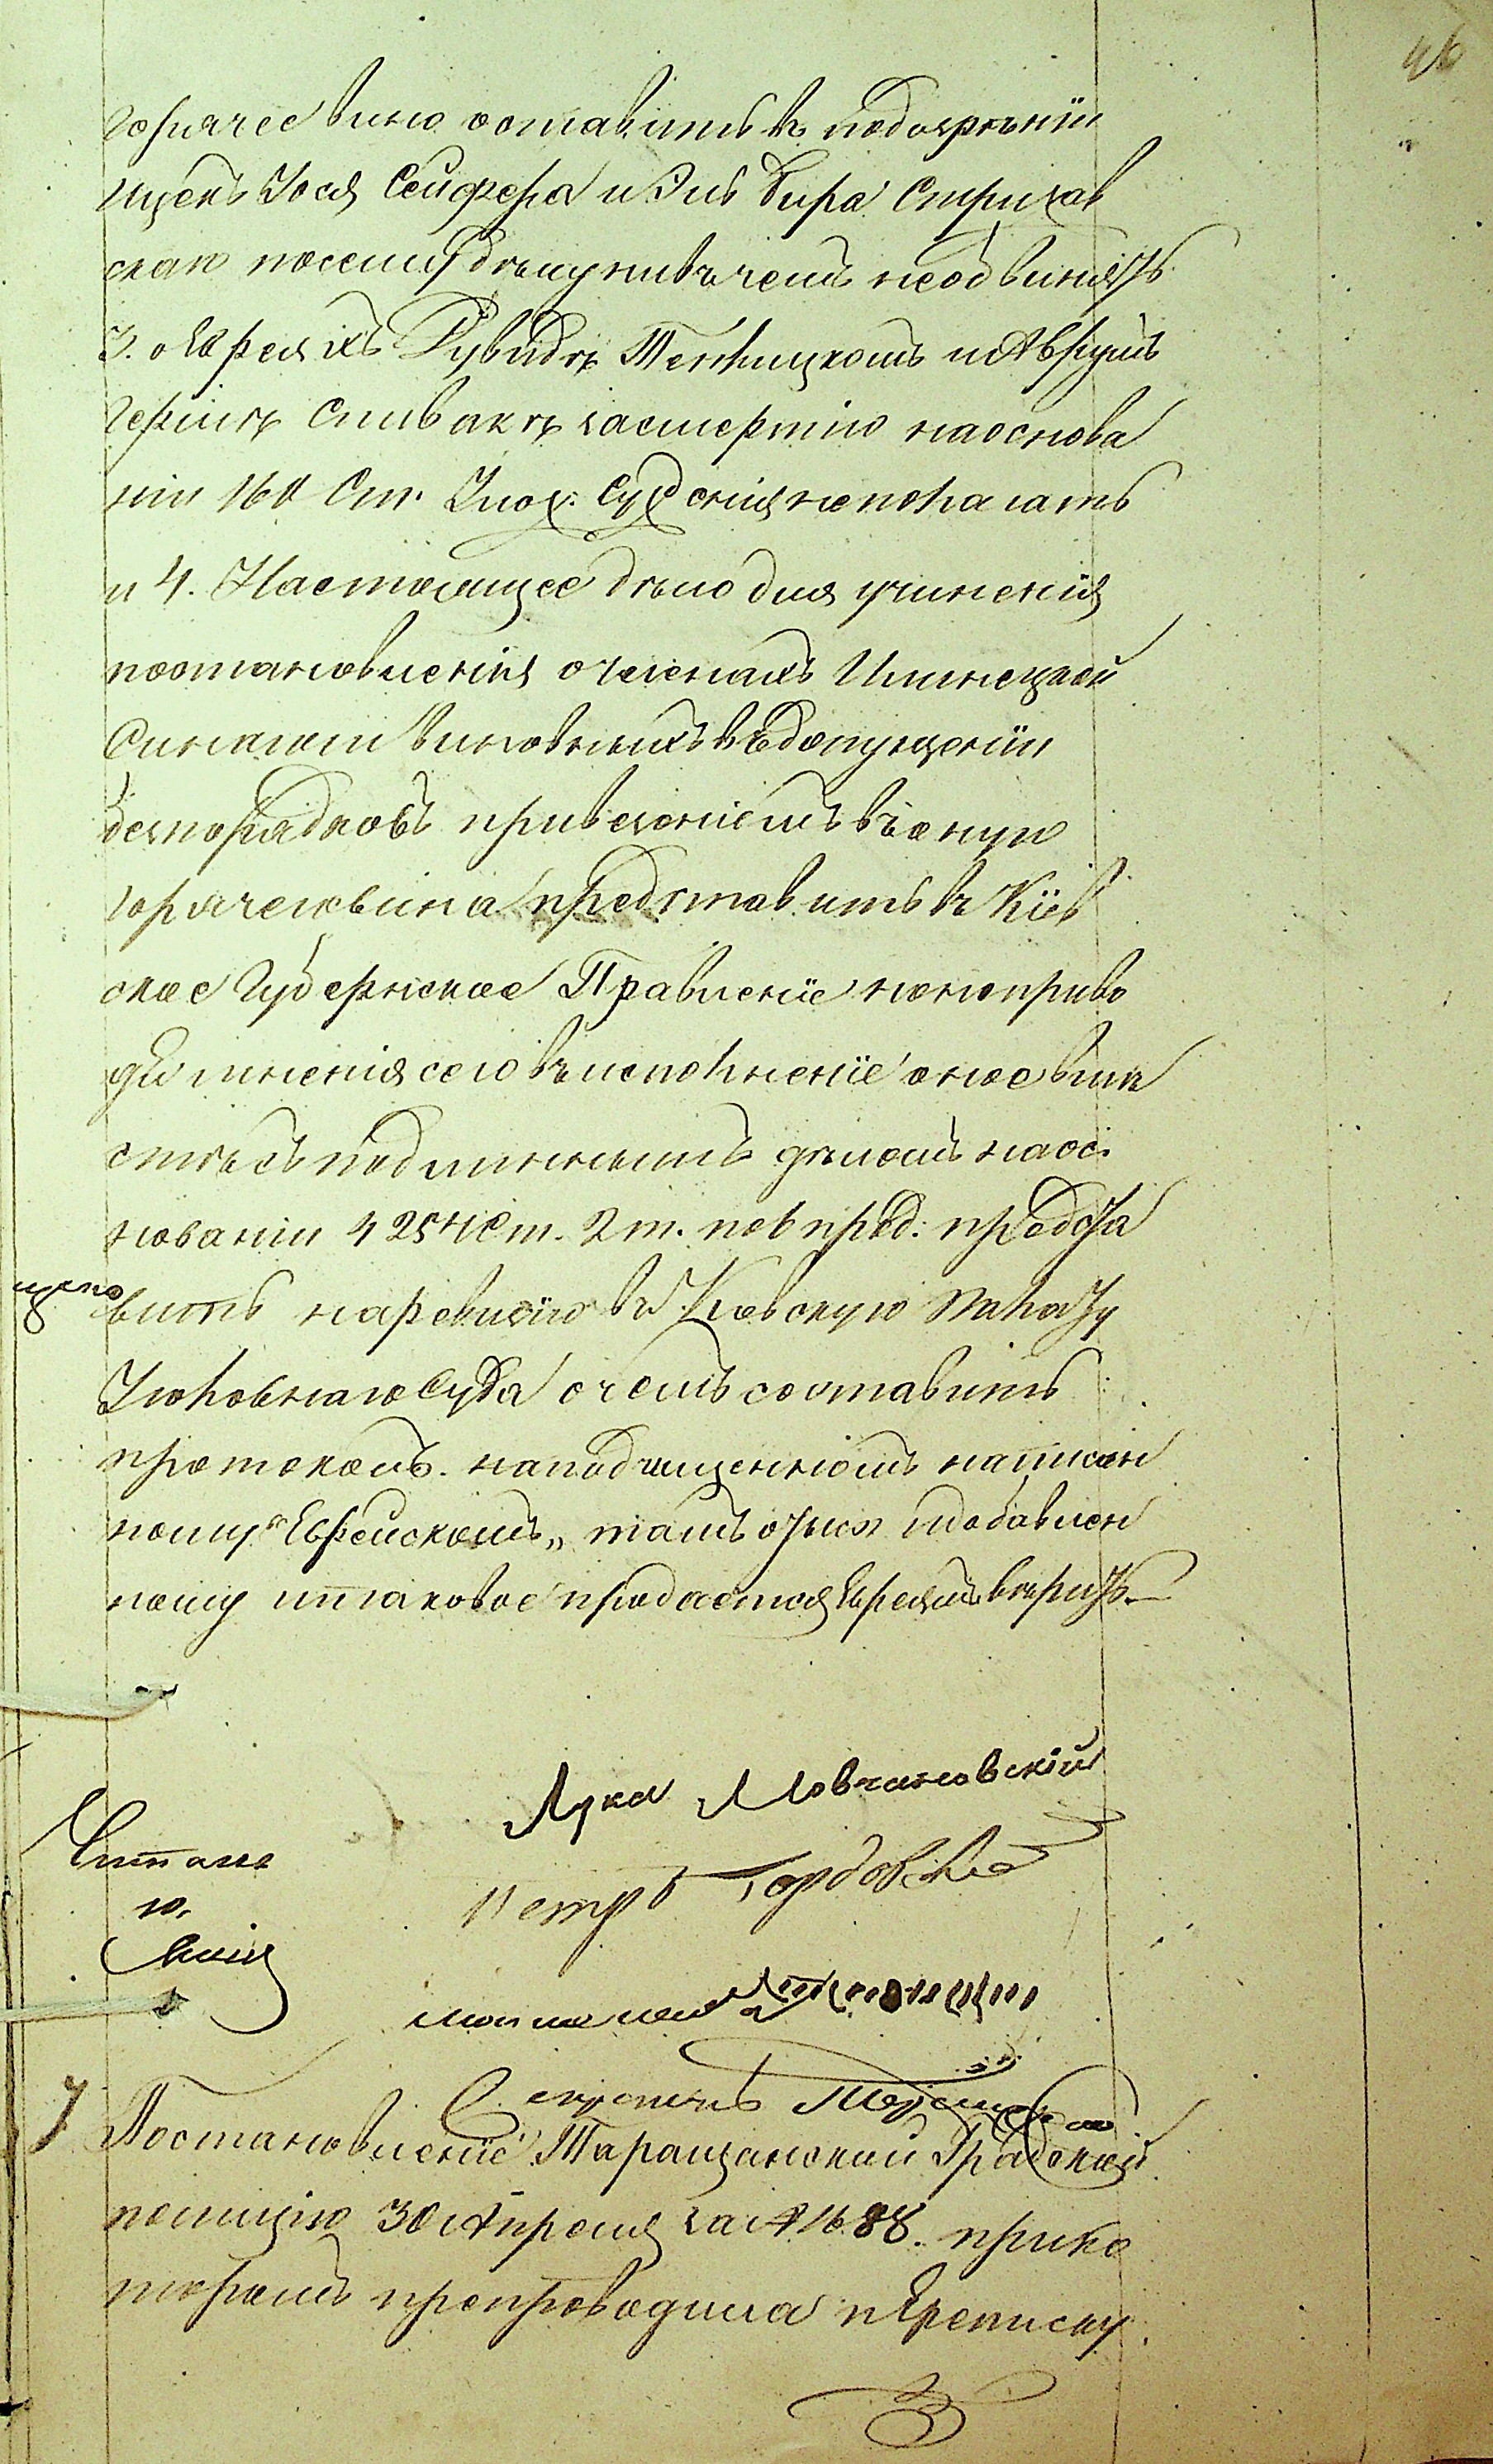 46
горячее вино оставить въ подозрѣніи
мужа Іося Сейфера и Эль Вира Стрихав
скаго посему дѣлу ни въ чемъ необвинять
3. о Евреяхъ Рувидѣ Теплицкомъ и Аврумѣ
Гершкѣ Спивакѣ за смертію на основа
ніи 160 Ст. Улож: Суд сужденія не полагать
и 4. Настоящее дѣло для учиненія
постановленія о членахъ Илинецкой
Синагоги виновныхъ въ допущеніи
безпорядковъ привезеніемъ въ оную
горячего вина представить въ Кіев
ское Губернское Правленіе но не приво
дя мнѣнія сего въ исполненіе оное вмѣ
стѣ съ подлиннымъ дѣломъ на ос
нованіи 4254 Ст. 2 т. по прод: предста
вить на ревизію въ Кіевскую Палату
Уголовнаго Суда о чемъ составить
протоколъ. на подчищенномъ написан
ному "Еврейскомъ„ тамъ о добавлен
ному и таковое продается Евреямъ вѣрить.—
Лука Мовчановскій
Петръ Гордовскій
Читалъ
Секретарь
7 Постановленіе Таращанской Градской
полиціи 30 Апрѣля за № 1688. при ко
торомъ препроводила переписку